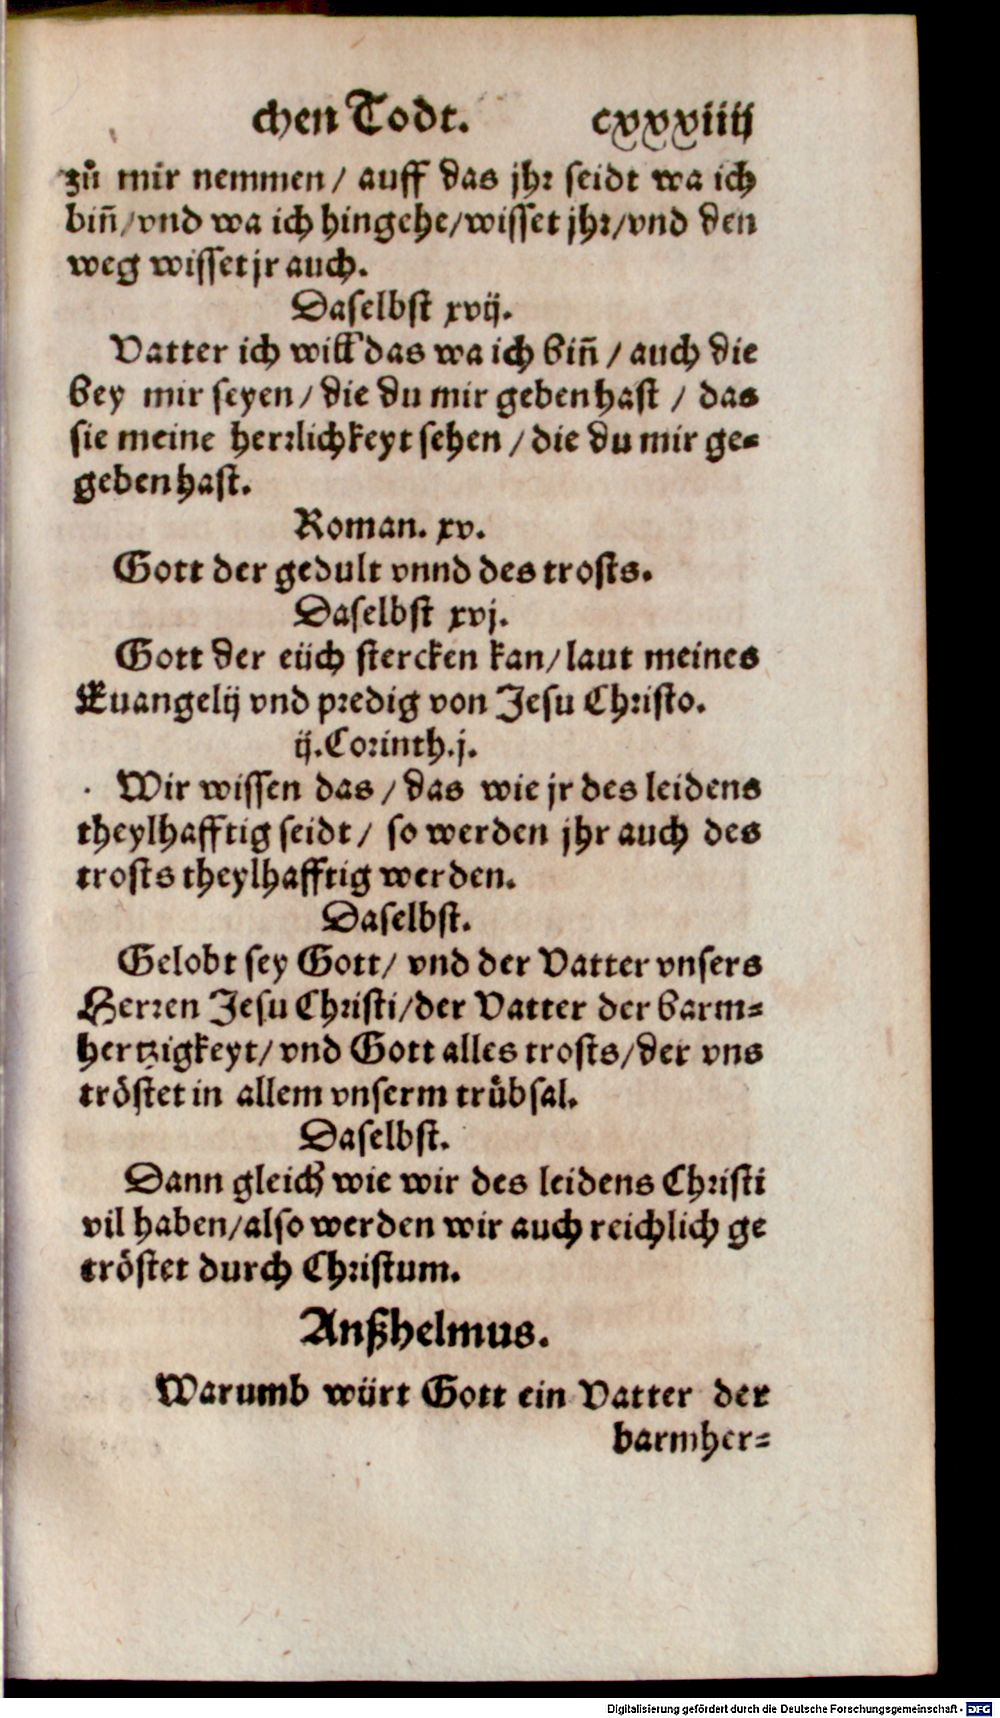 chen Todt. cxxxiiij
zů mir nemmen / auff das jhr seidt wa ich
biñ / vnd wa ich hingehe / wisset jhr / vnd den
weg wisset jr auch.
Daselbst xvij.
Vatter ich will das wa ich biñ / auch die
bey mir seyen / die du mir geben hast / das
sie meine herrlichkeyt sehen / die du mir ge=
geben hast.
Roman. xv.
Gott der gedult vnnd des trosts.
Daselbst xvj.
Gott der eüch stercken kan / laut meines
Euangelij vnd predig von Jesu Christo.
ij. Corinth. j.
Wir wissen das / das wie jr des leidens
theylhafftig seidt / so werden jhr auch des
trosts theylhafftig werden.
Daselbst.
Gelobt sey Gott / vnd der Vatter vnsers
Herren Jesu Christi / der Vatter der barm=
hertzigkeyt / vnd Gott alles trosts / der vns
tröstet in allem vnserm trůbsal.
Daselbst.
Dann gleich wie wir des leidens Christi
vil haben / also werden wir auch reichlich ge
tröstet durch Christum.
Anßhelmus.
Warumb würt Gott ein Vatter der
barmher=
Digitalisierung gefördert durch die Deutsche Forschungsgemeinschaft - DFG